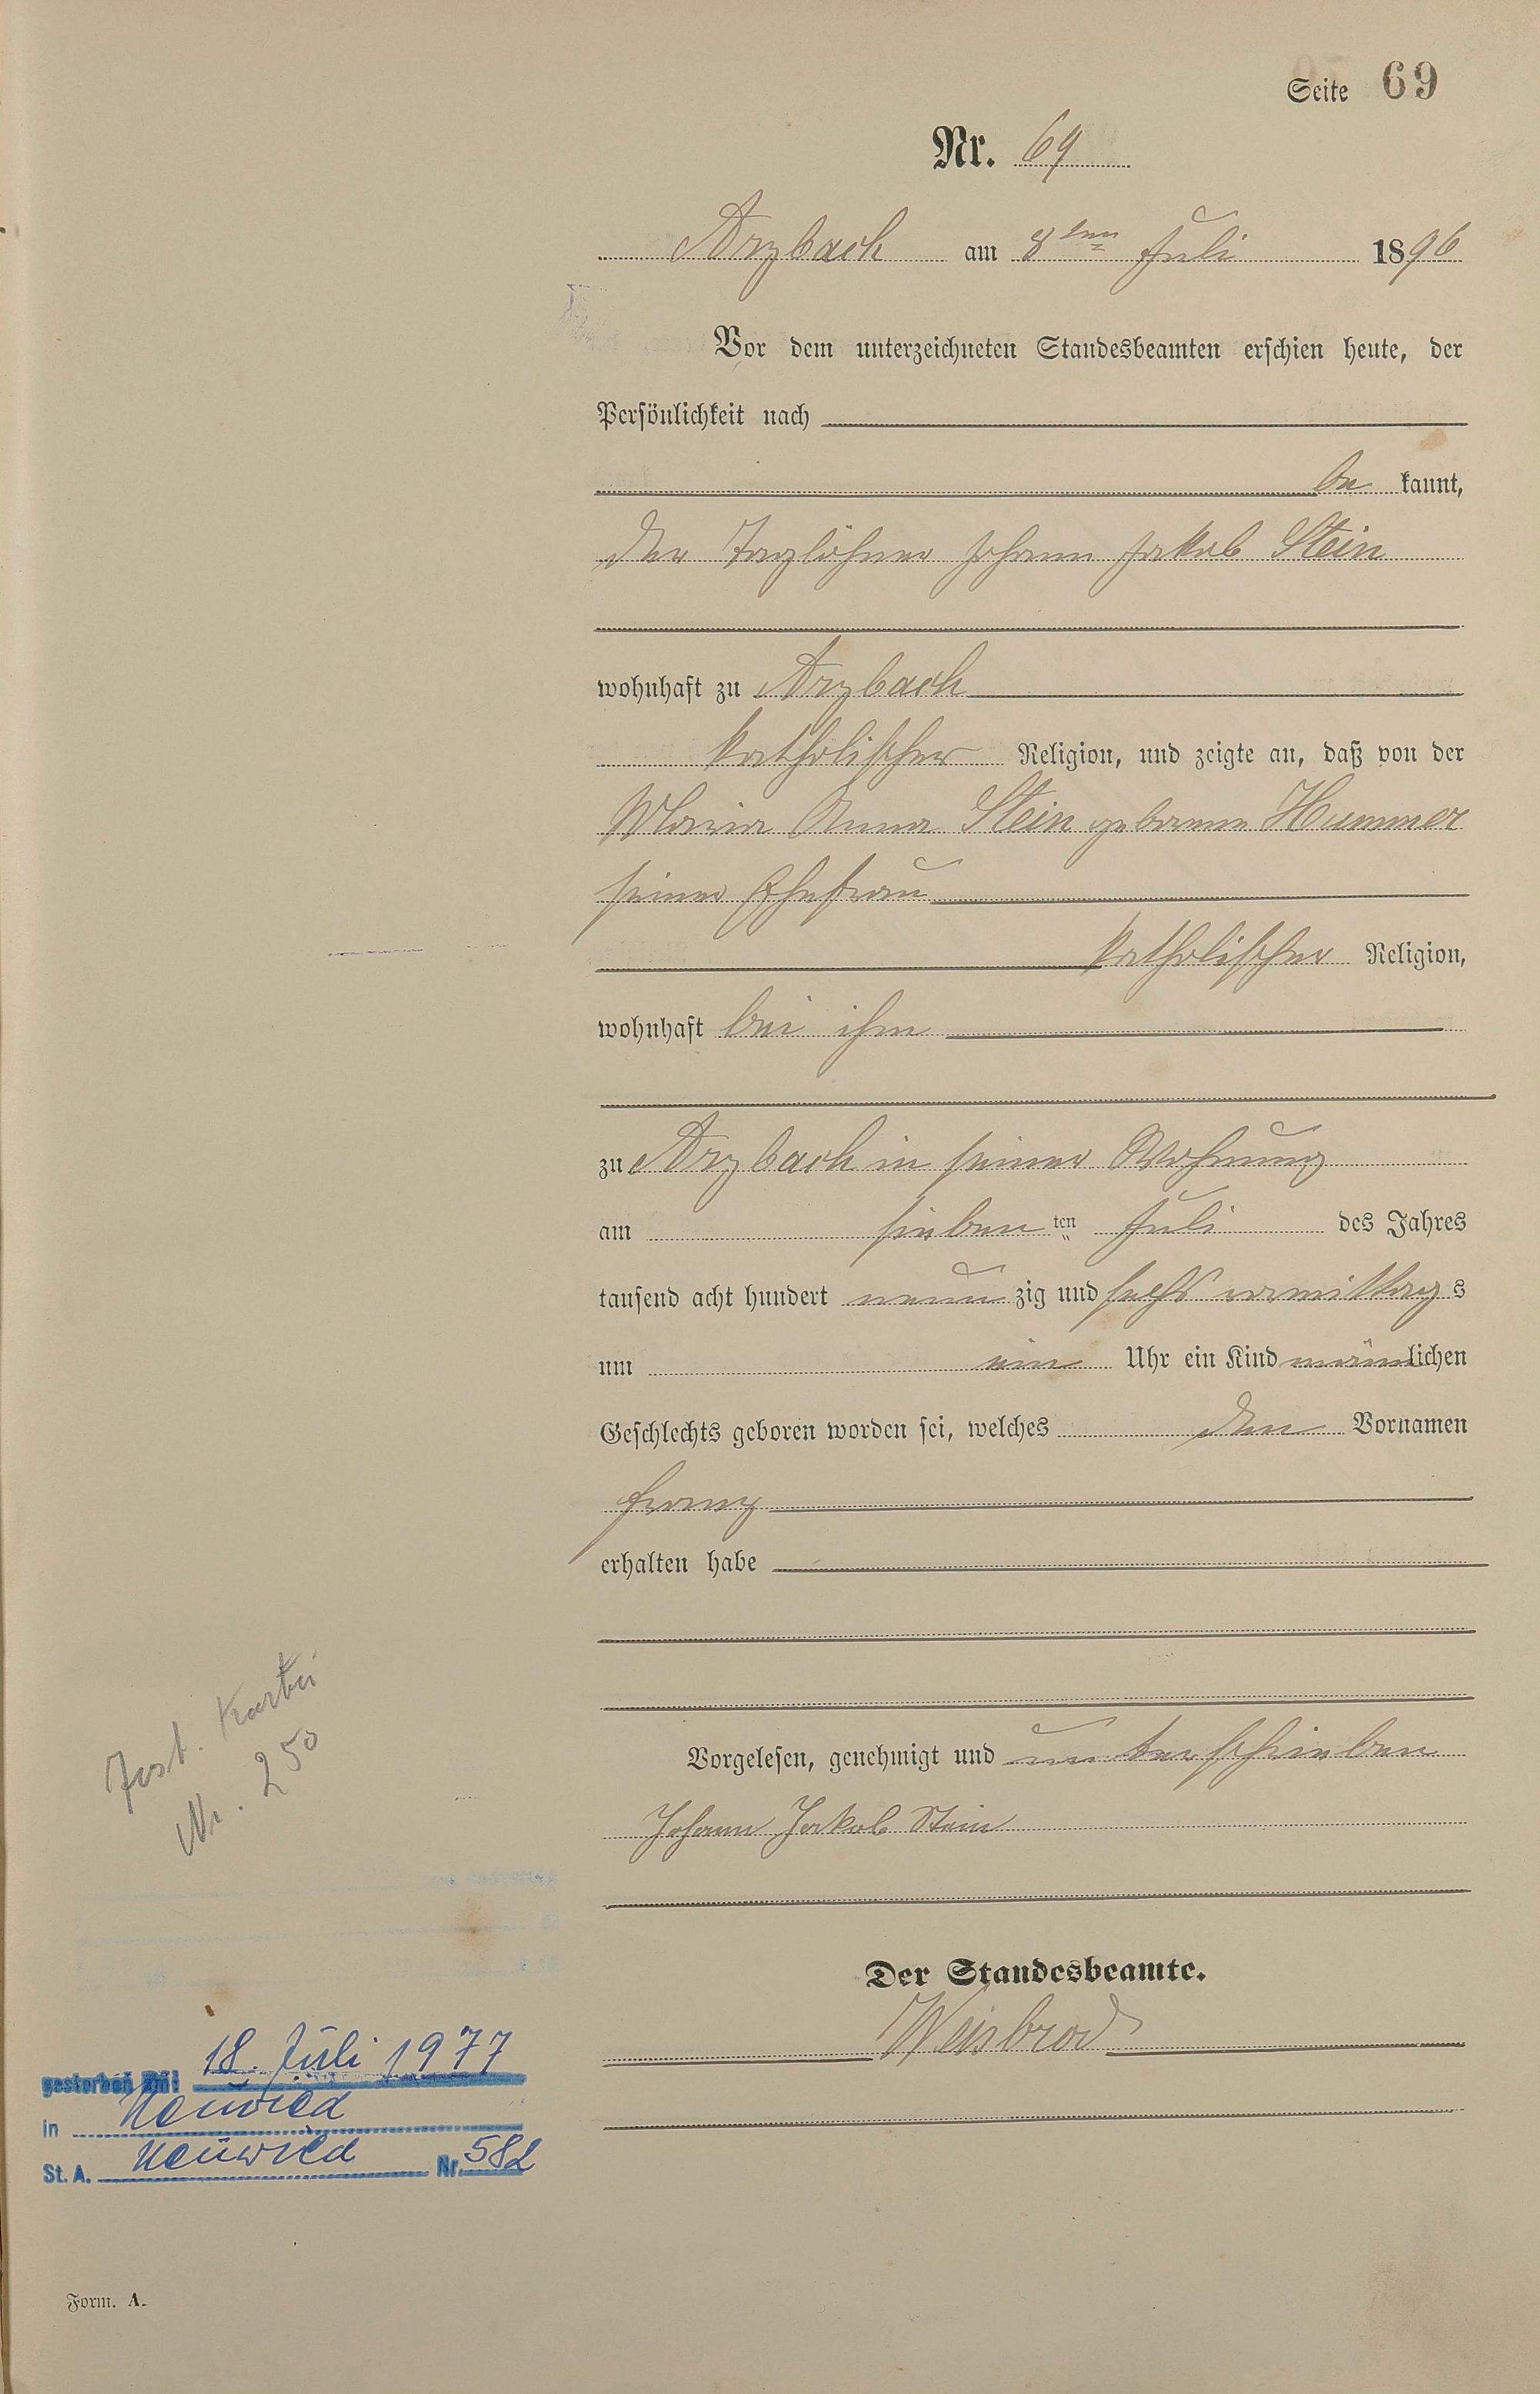 Seite 69
Nr. 69
Arzbach am 8ten Juli 1896
Vor dem unterzeichneten Standesbeamten erschien heute, der
Persönlichkeit nach
be kannt,
der Taglöhner Johann Jakob Stein
wohnhaft zu Arzbach
katholischer Religion, und zeigte an, daß von der
Maria Anna Stein geborenen Hummer
seiner Ehefrau
katholischer Religion,
wohnhaft bei ihm
zu Arzbach in seiner Wohnung
am sieben ten Juli des Jahres
tausend acht hundert neun zig und sechs vormittags
um ein Uhr ein Kind männlichen
Geschlechts geboren worden sei, welches den Vornamen
Franz
erhalten habe
Vorgelesen, genehmigt und unterschrieben
Johann Jakob Stein
Der Standesbeamte.
Weisbrod
Kartei
Nr. 250
gestorben am: 18. Juli 1977
in Neuwied
St. A. Neuwied Nr. 582
Form. A.